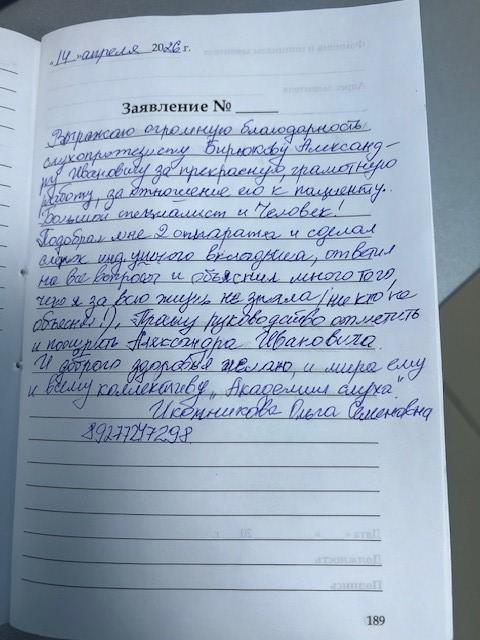 „14" апреля 2026 г.
Заявление № ____
Выражаю огромную благодарность
слухопротезисту Бирюкову Александ-
ру Ивановичу за прекрасную грамотную
работу, за отношение его к пациенту.
Большой специалист и Человек!
Подобрал мне 2 аппарата и сделал
слепок индушного вкладыша, ответил
на все вопросы и объяснил много того,
чего я за всю жизнь не знала (ни кто не
объяснял!). Прошу руководство отметить
и поощрить Александра Ивановича.
И доброго здоровья желаю, и мира ему
и всему коллективу „Академии слуха".
Икон­никова Ольга Семеновна
89277247298
Дата « » 20 г.
Должность
Подпись
189